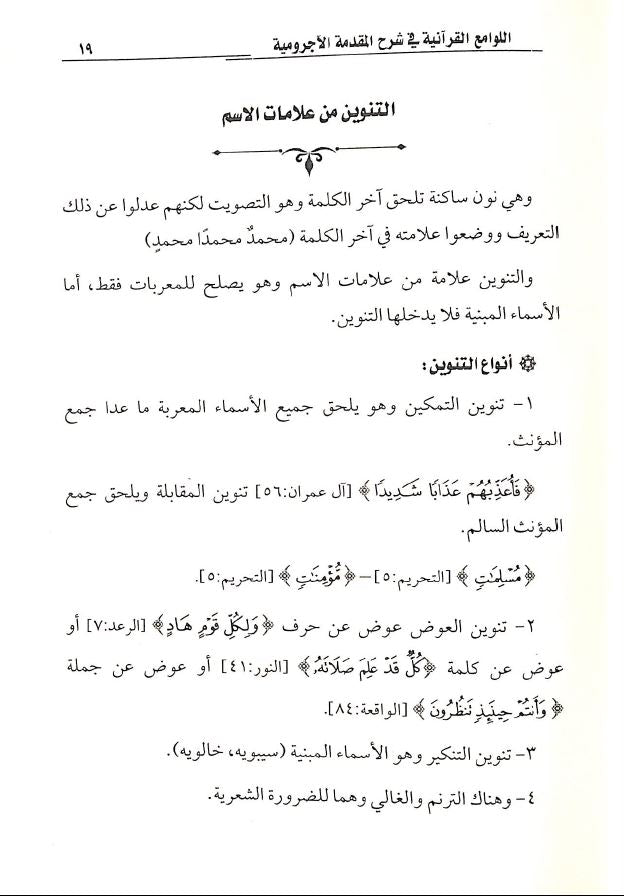 اللوامع القرآنية في شرح المقدمة الآجرومية ١٩
التنوين من علامات الاسم
وهي نون ساكنة تلحق آخر الكلمة وهو التصويت لكنهم عدلوا عن ذلك
التعريف ووضعوا علامته في آخر الكلمة (محمدٌ محمدًا محمدٍ)
والتنوين علامة من علامات الاسم وهو يصلح للمعربات فقط، أما
الأسماء المبنية فلا يدخلها التنوين.
أنواع التنوين:
١- تنوين التمكين وهو يلحق جميع الأسماء المعربة ما عدا جمع
المؤنث.
﴿فَأُعَذِّبُهُمْ عَذَابًا شَدِيدًا﴾ [آل عمران:٥٦] تنوين المقابلة ويلحق جمع
المؤنث السالم.
﴿مُسْلِمَٰتٍ﴾ [التحريم:٥] – ﴿مُّؤْمِنَٰتٍ﴾ [التحريم:٥].
٢- تنوين العوض عوض عن حرف ﴿وَلِكُلِّ قَوْمٍ هَادٍ﴾ [الرعد:٧] أو
عوض عن كلمة ﴿كُلٌّ قَدْ عَلِمَ صَلَاتَهُۥ﴾ [النور:٤١] أو عوض عن جملة
﴿وَأَنتُمْ حِينَئِذٍ تَنظُرُونَ﴾ [الواقعة:٨٤].
٣- تنوين التنكير وهو الأسماء المبنية (سيبويه، خالويه).
٤- وهناك الترنم والغالي وهما للضرورة الشعرية.